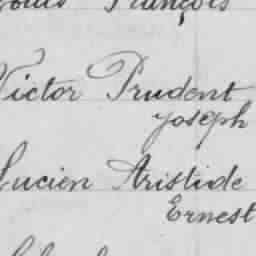 Louis François
Victor Prudent
Joseph
Lucien Aristide
Ernest